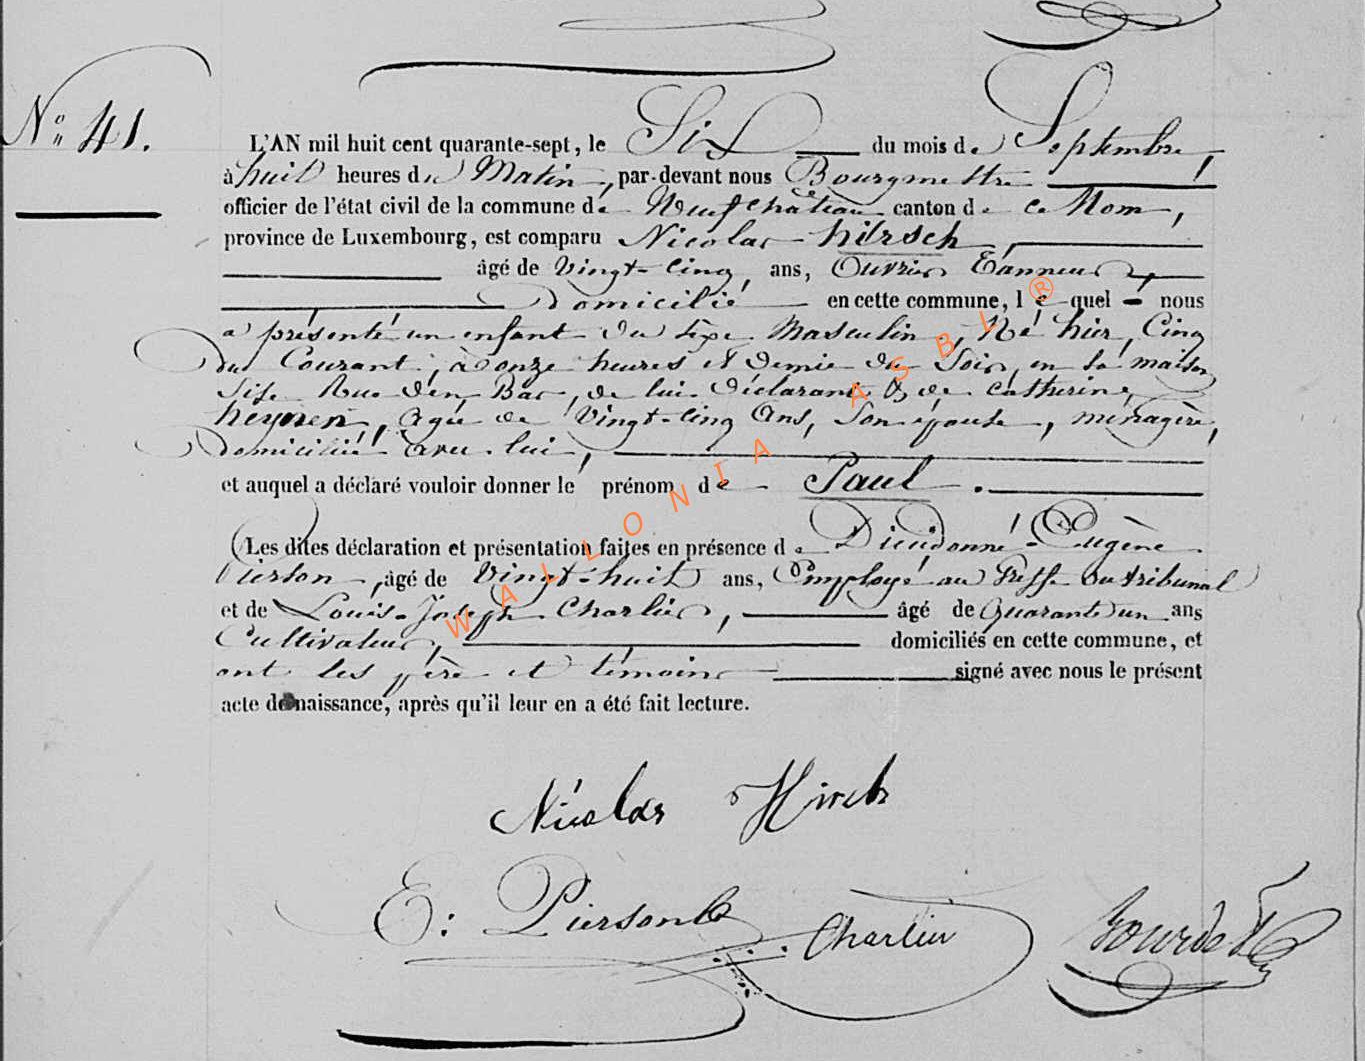 N° 41.
L'AN mil huit cent quarante-sept, le Six du mois de Septembre,
à huit heures du Matin, par-devant nous Bourgmestre
officier de l'état civil de la commune de Neufchâteau canton de ce Nom,
province de Luxembourg, est comparu Nicolas hirsch,
âgé de Vingt-Cinq ans, Ouvrier Tanneur,
Domicilié en cette commune, lequel nous
a présenté un enfant du sexe Masculin, Né hier, Cinq
du Courant, à onze heures et Demie du Soir, en sa maison
Sise Rue d'en Bas, de lui Déclarant & de Catherine
heynen, agée de Vingt-Cinq Ans, Son épouse, ménagère,
domiciliée avec lui,
et auquel a déclaré vouloir donner le prénom de Paul.
Les dites déclaration et présentation faites en présence de Dieudonné-Eugène
Pierson, âgé de Vingt-huit ans, Employé au Greffe du tribunal
et de Louis-Joseph Charlier, âgé de Quarante un ans
Cultivateur, domiciliés en cette commune, et
ont les père et témoins signé avec nous le présent
acte de naissance, après qu'il leur en a été fait lecture.
Nicolas Hirch
E: Pierson
Charlier
WALLONIA ASBL ®